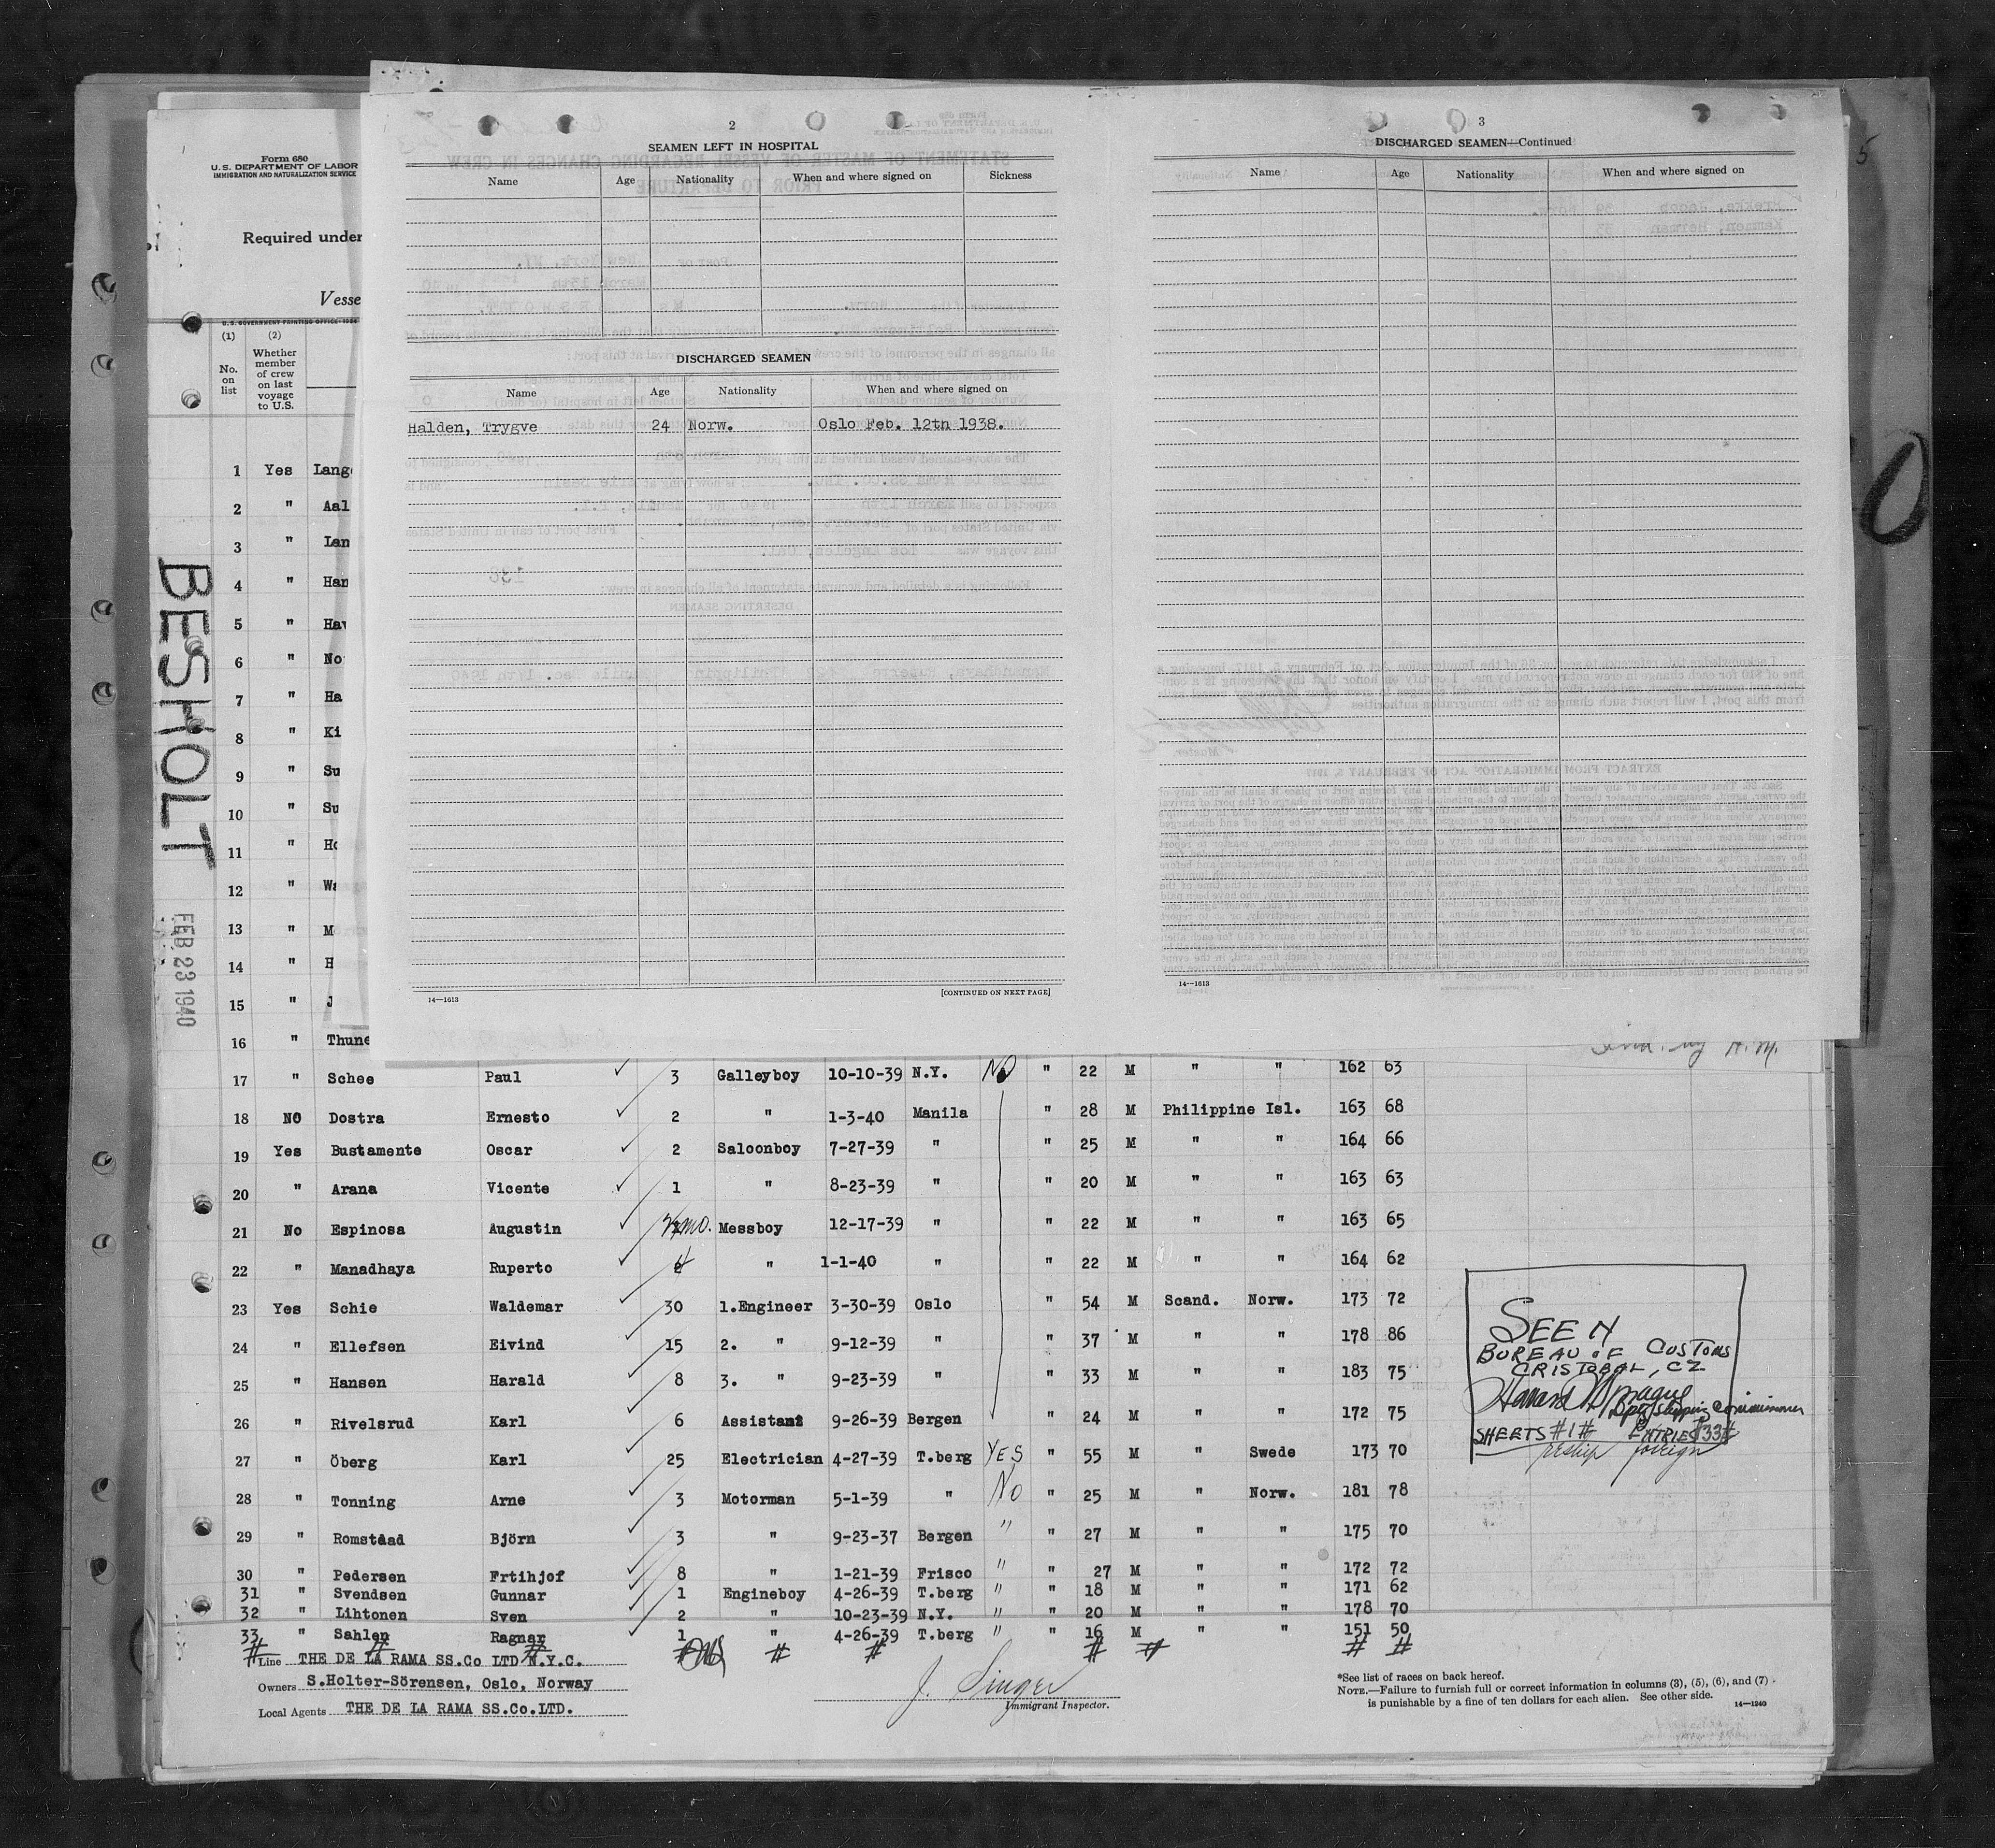 Form 680
U.S. DEPARTMENT OF LABOR
IMMIGRATION AND NATURALIZATION SERVICE
Required under
Vesse
U.S. GOVERNMENT PRINTING OFFICE
(1) (2)
No. on list
Whether member of crew on last voyage to U.S.
BESHOLT
FEB 23 1940
5
2
SEAMEN LEFT IN HOSPITAL
Name Age Nationality When and where signed on Sickness
DISCHARGED SEAMEN
Name Age Nationality When and where signed on
Halden, Trygve 24 Norw. Oslo Feb. 12th 1938.
14—1613 [CONTINUED ON NEXT PAGE]
3
DISCHARGED SEAMEN—Continued
Name Age Nationality When and where signed on
14—1613
1 Yes Lang
2 " Aal
3 " Lan
4 " Han
5 " Hav
6 " No
7 " Ha
8 " Ki
9 " Su
10 " Su
11 " Ho
12 " Wa
13 " M
14 " H
15 " J
16 " Thune
17 " Schee Paul 3 Galleyboy 10-10-39 N.Y. No " 22 M " " 162 63
18 NO Dostra Ernesto 2 " 1-3-40 Manila " 28 M Philippine Isl. 163 68
19 Yes Bustamente Oscar 2 Saloonboy 7-27-39 " " 25 M " " 164 66
20 " Arana Vicente 1 " 8-23-39 " " 20 M " " 163 63
21 No Espinosa Augustin mo. Messboy 12-17-39 " " 22 M " " 163 65
22 " Manadhaya Ruperto " 1-1-40 " " 22 M " " 164 62
23 Yes Schie Waldemar 30 1.Engineer 3-30-39 Oslo " 54 M Scand. Norw. 173 72
24 " Ellefsen Eivind 15 2. " 9-12-39 " " 37 M " " 178 86
25 " Hansen Harald 8 3. " 9-23-39 " " 33 M " " 183 75
26 " Rivelsrud Karl 6 Assistant 9-26-39 Bergen " 24 M " " 172 75
27 " Öberg Karl 25 Electrician 4-27-39 T.berg YES " 55 M " Swede 173 70
28 " Tonning Arne 3 Motorman 5-1-39 " No " 25 M " Norw. 181 78
29 " Romstaad Björn 3 " 9-23-37 Bergen " " 27 M " " 175 70
30 " Pedersen Frtihjof 8 " 1-21-39 Frisco " " 27 M " " 172 72
31 " Svendsen Gunnar 1 Engineboy 4-26-39 T.berg " " 18 M " " 171 62
32 " Lihtonen Sven 2 " 10-23-39 N.Y. " " 20 M " " 178 70
33 " Sahlen Ragnar 1 " 4-26-39 T.berg " " 16 M " " 151 50
# # # # # # # # # #
SEEN
BUREAU OF CUSTOMS
CRISTOBAL, CZ
Dpty Shipping Commissioner
SHEETS #1# ENTRIES #33#
reship foreign
Line THE DE LA RAMA SS.Co LTD N.Y.C.
Owners S.Holter-Sörensen, Oslo, Norway
Local Agents THE DE LA RAMA SS.Co.LTD.
J. Singer
Immigrant Inspector.
*See list of races on back hereof.
NOTE.—Failure to furnish full or correct information in columns (3), (5), (6), and (7)
is punishable by a fine of ten dollars for each alien. See other side.
14—1240